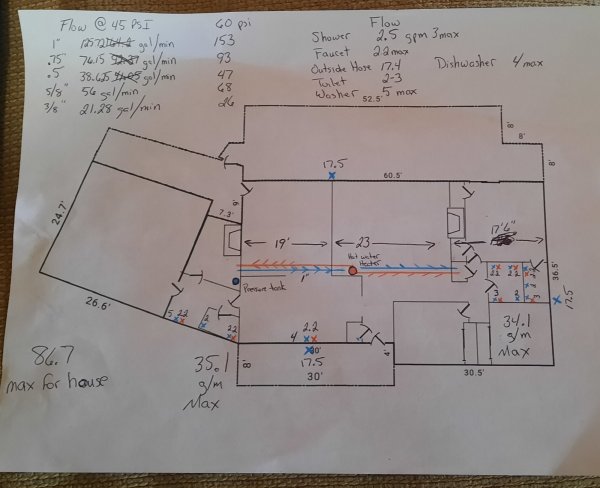 Flow @ 45 PSI
60 psi
1" gal/min 153
.75" 76.15 gal/min 93
.5" 38.65 gal/min 47
5/8" 56 gal/min 68
3/8" 21.28 gal/min 26
Flow
Shower 2.5 gpm 3max
Faucet 2.2max
Outside Hose 17.4
Toilet 2-3
Washer 5 max
Dishwasher 4/max
52.5'
8'
8'
8'
17.5
60.5'
24.7'
7.3'
9'
19'
23
17'6"
Hot water
Heater
1"
Pressure tank
36.5'
17.5
26.6'
5 2.2
2
2.2
2.2
4
30'
17.5
30'
8'
4'
2.2 2.2
3 2 3
34.1
g/m
Max
30.5'
86.7
max for house
35.1
g/m
Max